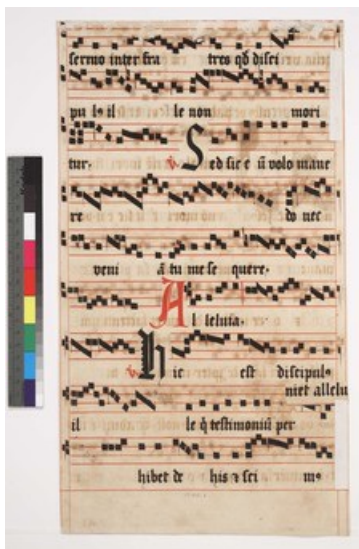 sermo inter fra tres qd disci
pu ls il le non mori
tur. v Sed sic e ū volo mane
re do nec
veni ā tu me se quere.
Alleluia.
v Hic est discipul⁹
niet allelu
il le q̄ testimoniū per
hibet de his ⁊ sci m⁹